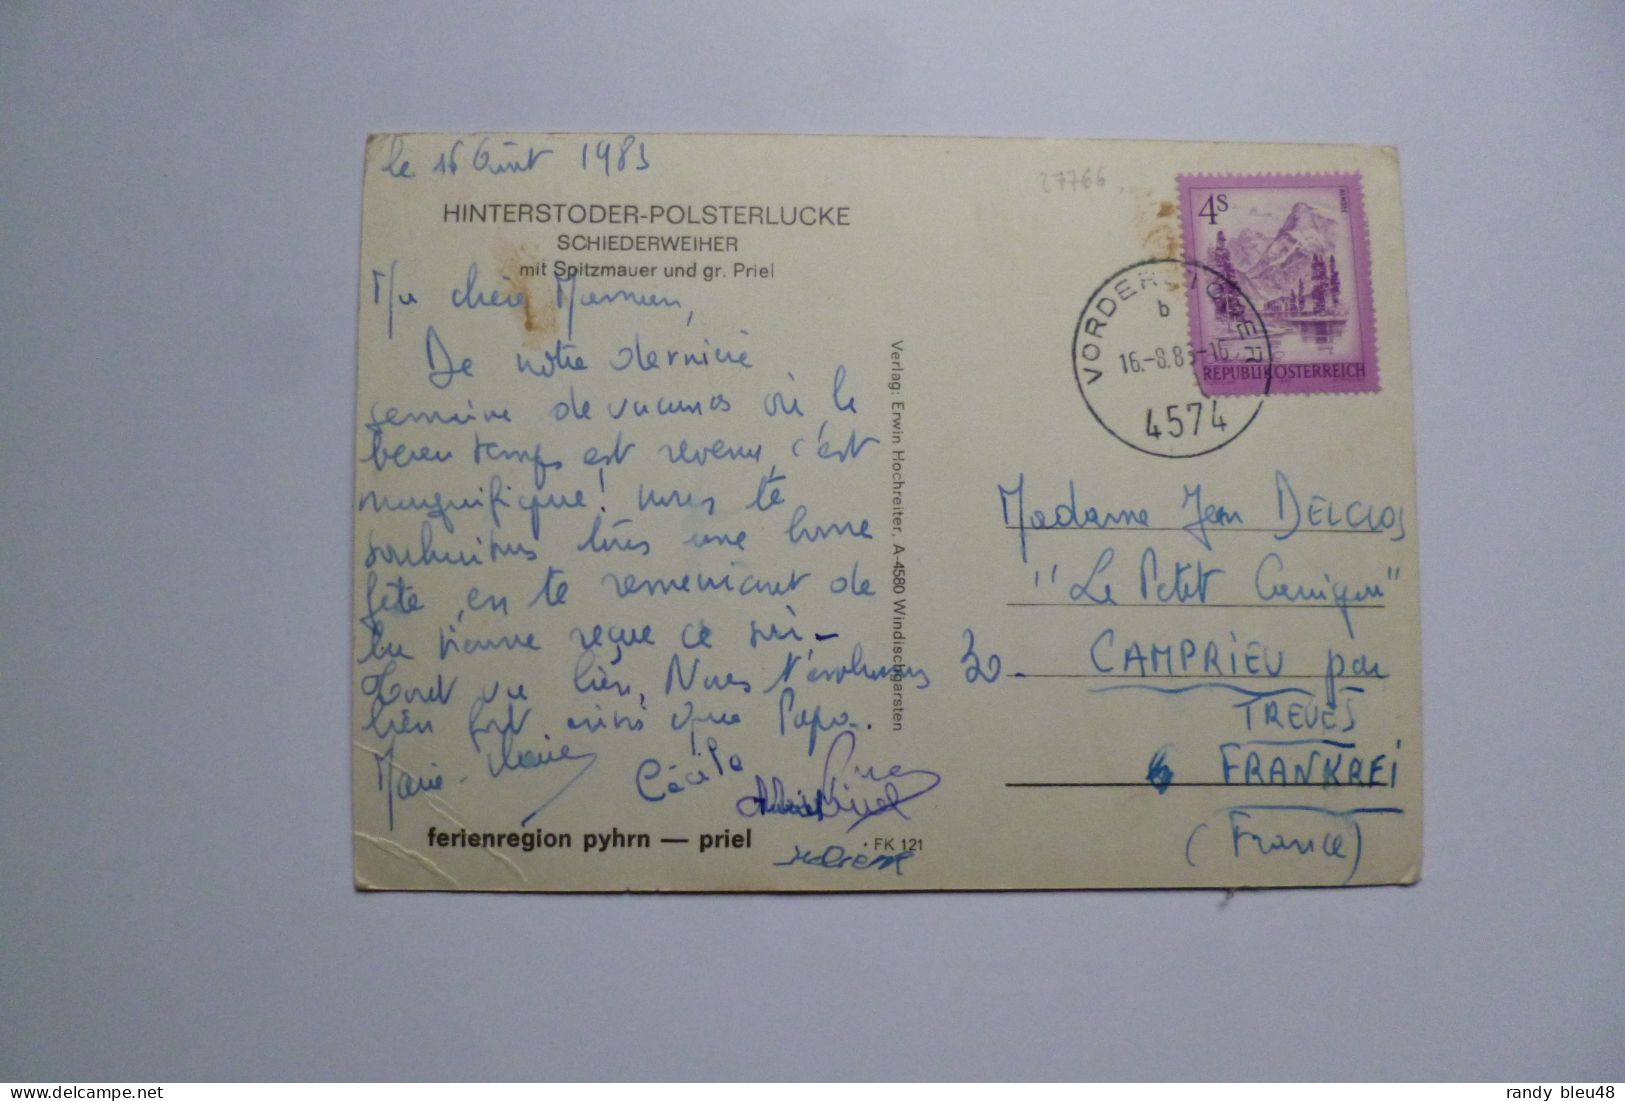 le 16 Août 1983
27766
HINTERSTODER-POLSTERLUCKE
SCHIEDERWEIHER
mit Spitzmauer und gr. Priel
Ma chère Maman,
De notre dernière
semaine de vacances où le
beau temps est revenu, c'est
magnifique! nous te
souhaitons très une bonne
fête, en te remerciant de
la tienne reçue ce
bien fort ainsi que Papa.
Marie-Claire
Cécile
ferienregion pyhrn — priel
FK 121
Verlag: Erwin Hochreiter, A-4580 Windischgarsten
4S
ALMSEE
REPUBLIK ÖSTERREICH
VORDERSTODER
b
16.-8.83-16
4574
Madame Jean DELCLOS
"Le Petit
30 - CAMPRIEU par
TREVES
FRANKREI
(France)
randy bleu48